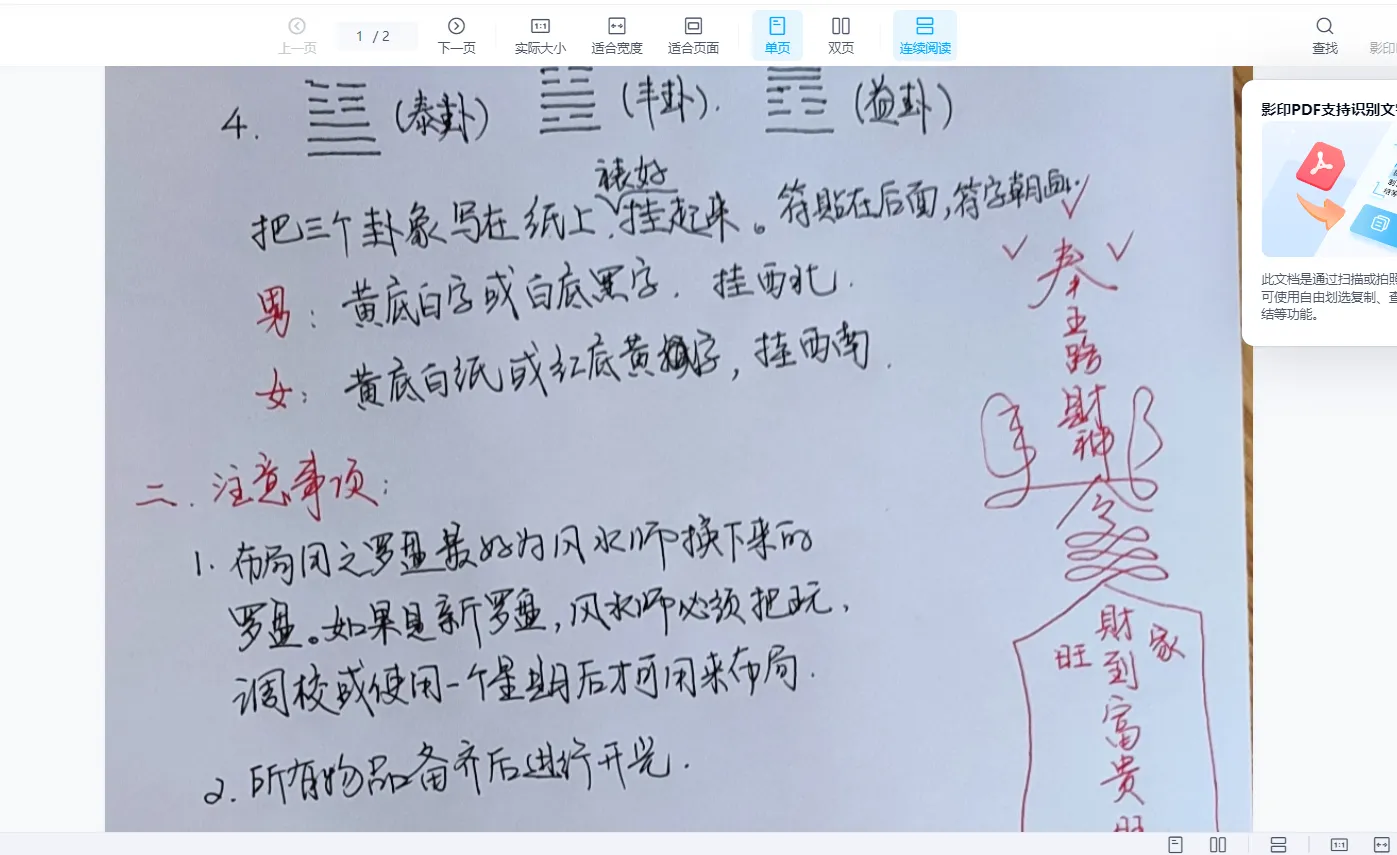 上一页
1 / 2
下一页
实际大小
适合宽度
适合页面
单页
双页
连续阅读
查找
影印
影印PDF支持识别文字
此文档是通过扫描或拍照
可使用自由划选复制、查
结等功能。
4. (泰卦) (丰卦). (益卦)
裱好
把三个卦象写在纸上,挂起来。符贴在后面,符字朝画.
男: 黄底白字或白底黑字. 挂西北.
女: 黄底白纸或红底黄字, 挂西南.
二. 注意事项:
1. 布局用之罗盘最好为风水师换下来的
罗盘。如果是新罗盘, 风水师必须把玩,
调校或使用一个星期后才可用来布局.
2. 所有物品备齐后进行开光.
奉
五
路
財
神
令
財
到
富
貴
旺
旺
家